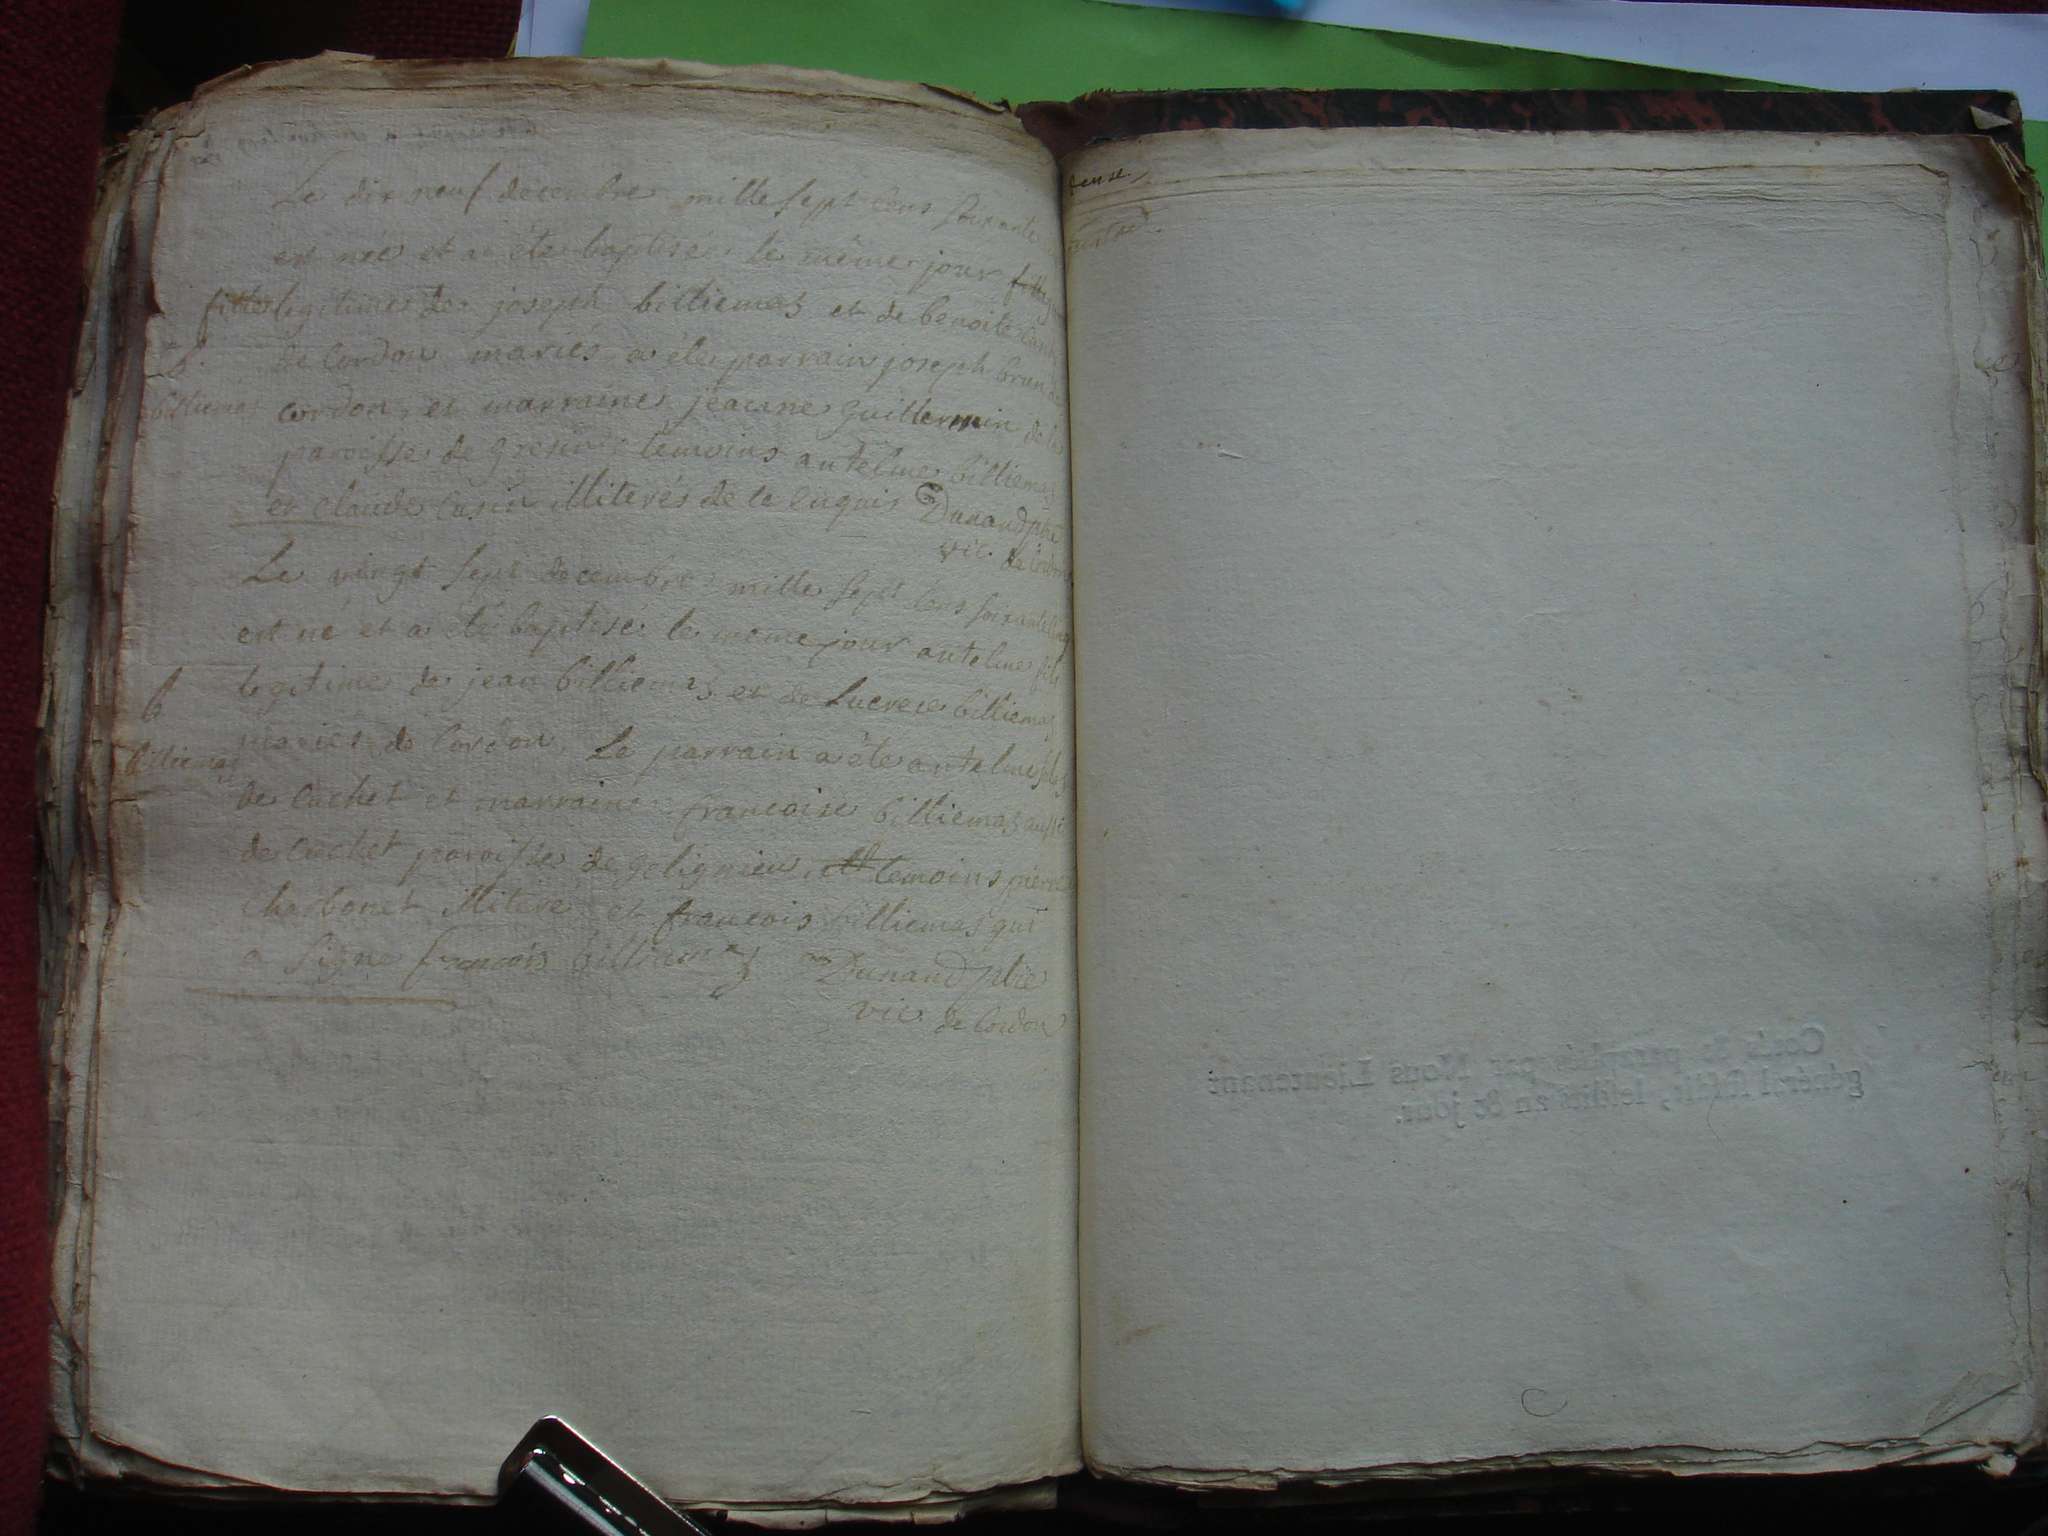 Le dix neuf decembre mille sept cens soixante
est née et a été baptisée le même jour
fille legitime de joseph billiemaz et de benoite
de Cordon mariés a été parrain joseph brun de
B.
billiemaz
Cordon, et marraine jeanne Guillermin de la
paroisse de Gresin temoins antelme billiemaz
et claude Cusin illiterés de ce enquis Dunand ptre
vic. de Cordon
Le vingt sept decembre mille sept cens soixante cinq
est né et a été baptisé le meme jour antelme fils
legitime de jean billiemaz et de Lucrece billiemaz
b
billiemaz
mariés de Cordon, Le parrain a été antelme
de Cuchet et marraine francoise billiemaz aussi
de Cuchet paroisse de gelignieu, temoins pierre
Charbonet illiteré et francois billiemaz qui
a signé francois billiemaz Dunand ptre
vic. de Cordon
Cotté & paraphé par Nous Lieutenant
général susdit, lesdits an & jour.